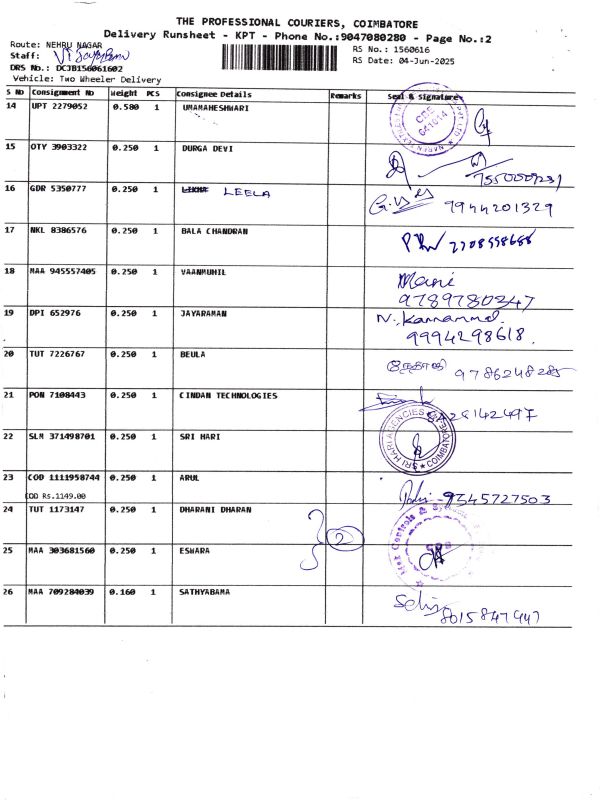 THE PROFESSIONAL COURIERS, COIMBATORE
Delivery Runsheet - KPT - Phone No.:9047080280 - Page No.:2
Route: NEHRU NAGAR
RS No.: 1560616
Staff:
RS Date: 04-Jun-2025
DRS No.: DCJB156061602
Vehicle: Two Wheeler Delivery
S No Consignment No Weight PCS Consignee Details Remarks Seal & Signature
14 UPT 2279052 0.580 1 UMAMAHESHWARI
CBE 641014
15 OTY 3903322 0.250 1 DURGA DEVI
16 GDR 5350777 0.250 1 LEELA 9944201329
17 NKL 8386576 0.250 1 BALA CHANDRAN
18 MAA 945557405 0.250 1 VAANMUHIL Mani
9789780247
19 DPI 652976 0.250 1 JAYARAMAN N. Kannammal
9994298618.
20 TUT 7226767 0.250 1 BEULA 9786248285
21 PON 7108443 0.250 1 CINDAN TECHNOLOGIES
22 SLM 371498701 0.250 1 SRI HARI SRI HARI AGENCIES COIMBATORE
23 COD 1111958744 0.250 1 ARUL 9345727503
COD RS.1149.00
24 TUT 1173147 0.250 1 DHARANI DHARAN
2
25 MAA 303681560 0.250 1 ESWARA
26 MAA 709284039 0.160 1 SATHYABAMA
8015847947